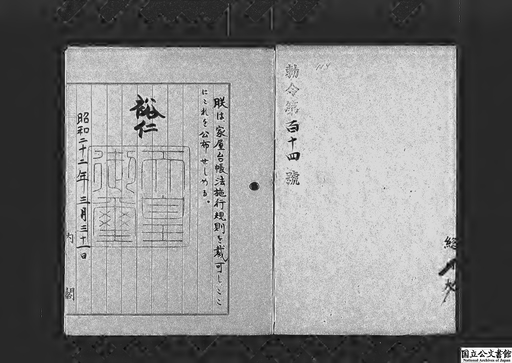 勅令第百十四號
114
朕は家屋台帳法施行規則を裁可し、ここ
にこれを公布せしめる。
裕仁
天皇御璽
昭和二十二年三月三十一日
内閣
国立公文書館
National Archives of Japan